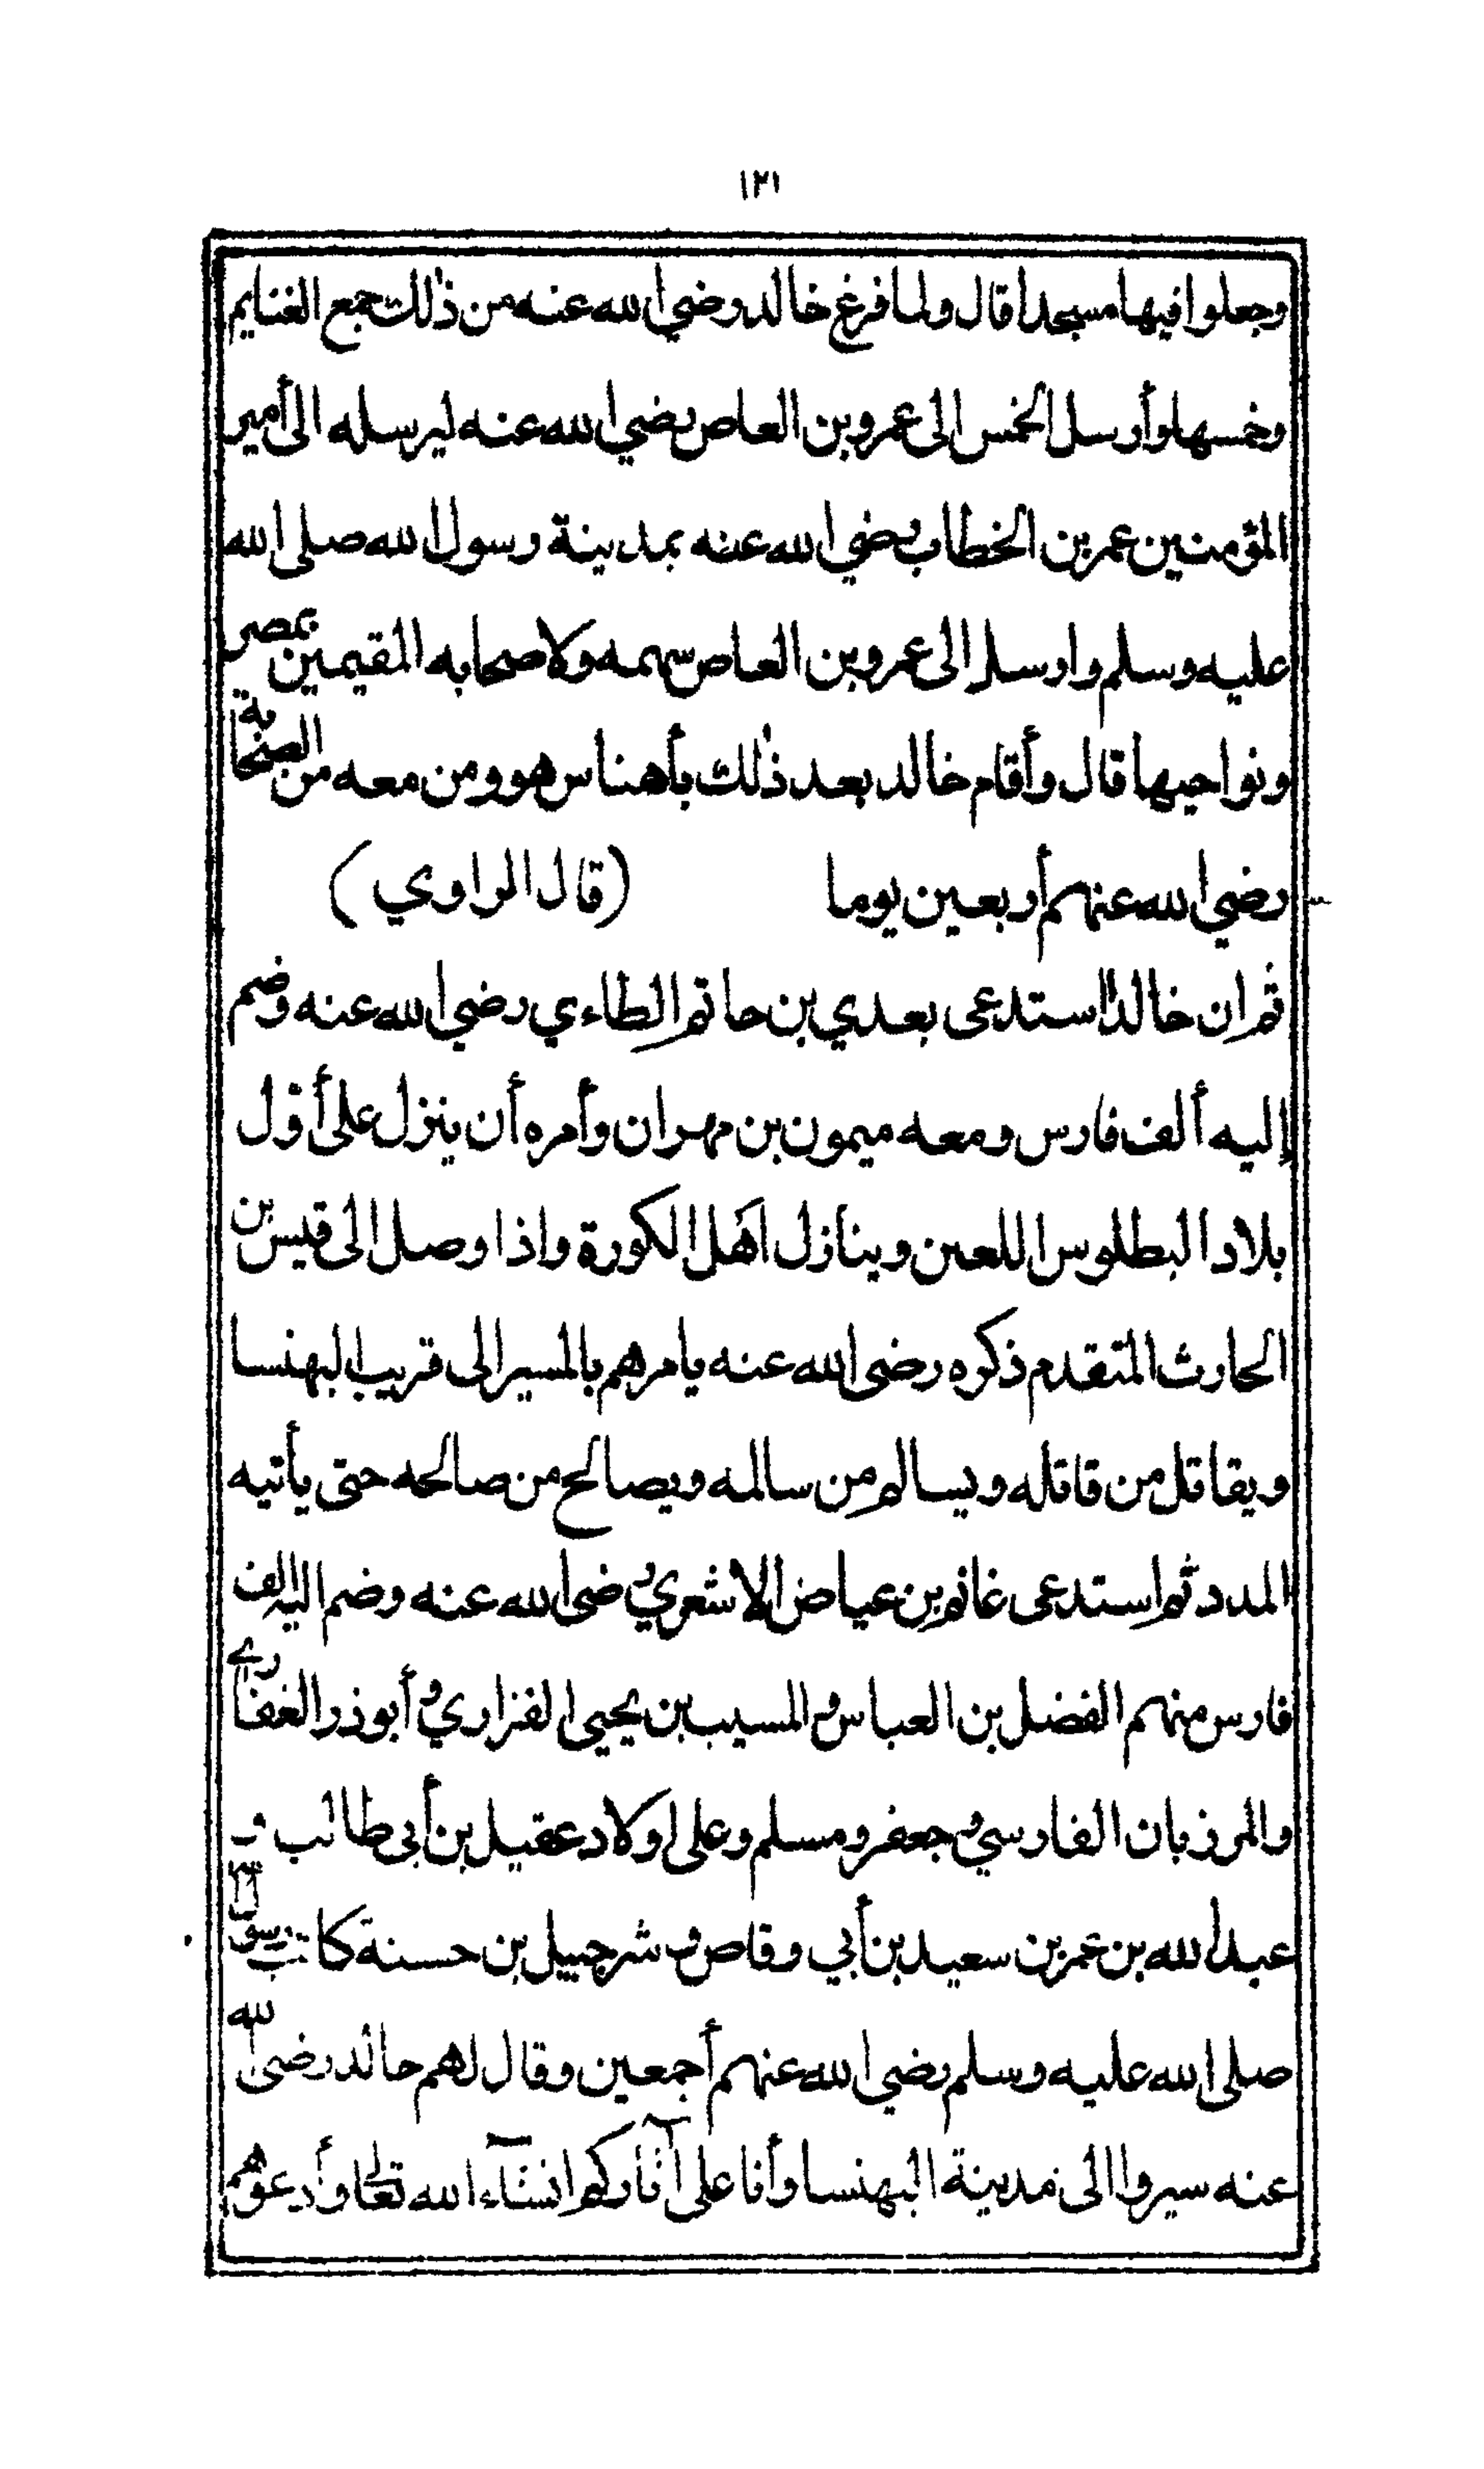 ١٢١
وجعلوا فيها مسجدا قال ولما فرغ خالد رضي الله عنه من ذٰلك جمع الغنايم
وخمسها وأرسل الخمس الى عمرو بن العاص رضي الله عنه ليرسله الى أمير
المؤمنين عمر بن الخطاب رضي الله عنه بمدينة رسول الله صلى الله
عليه وسلم وارسل الى عمرو بن العاص سهمه ولاصحابه المقيمين بمصر
ونواحيها قال وأقام خالد بعد ذٰلك بأهناس هو ومن معه من الصحابة
رضي الله عنهم أربعين يوما (قال الراوي)
ثم ان خالدا استدعى بعدي بن حاتم الطاءي رضي الله عنه وضم
إليه ألف فارس ومعه ميمون بن مهران وأمره أن ينزل على أوّل
بلاد البطلوس اللعين وينازل اهَل الكورة واذا وصل الى قيس بن
الحارث المتقدم ذكره رضى الله عنه يامرهم بالمسير الى قريب البهنسا
ويقاتل من قاتله ويسالم من سالمه ويصالح من صالحه حتى يأتيه
المدد ثم استدعى غانم بن عياض الاشعري رضى الله عنه وضم اليه الف
فارس منهم الفضل بن العباس و المسيب بن يحيى الفزاري و أبو ذر الغفاري
والمرزبان الفارسي و جعفر ومسلم وعلى اولاد عقيل بن أبى طالب و
عبد الله بن عمر بن سعيد بن أبي وقاص و شرجبيل بن حسنة كاتب رسول الله
صلى الله عليه وسلم رضي الله عنهم أجمعين وقال لهم خالد رضى الله
عنه سيروا الى مدينة البهنسا وأنا على آثاركم انشآء الله تعالى وأدعوهم